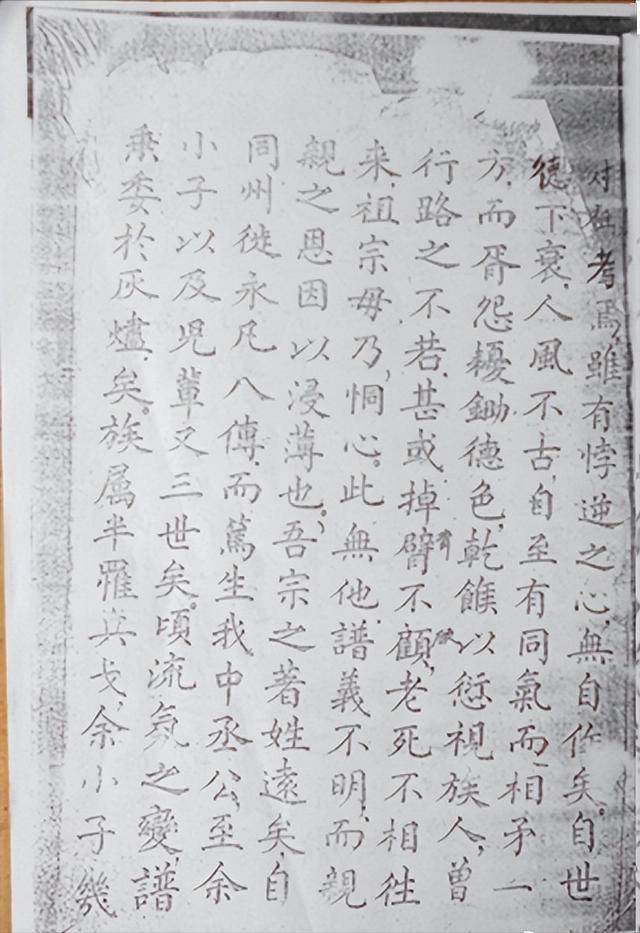 考焉,雖有悖逆之心,無自作矣。自世
德下衰,人風不古,自至有同氣而相矛一
方,而胥怨耰鋤德色,乾餱以愆視族人,曾
行路之不若,甚或掉臂不顧,老死不相往
来,祖宗毋乃,恫心。此無他,譜義不明,而親
親之恩因以浸薄也。吾宗之著姓遠矣,自
同州徙永凡八傳,而篤生我中丞公,至余
小子以及児輩又三世矣。頃流氛之變,譜
乗委於灰燼,矣。族属半罹兵戈,余小子幾